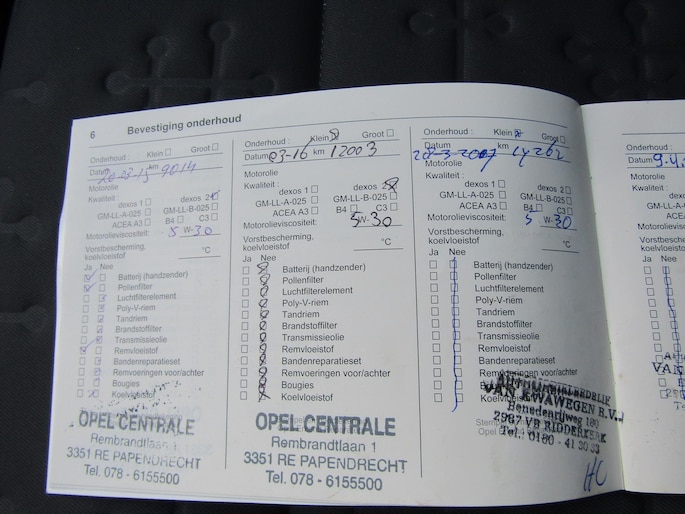 6 Bevestiging onderhoud
Onderhoud : Klein Groot
Datum km 9014
Motorolie
Kwaliteit :
dexos 1 dexos 2
GM-LL-A-025 GM-LL-B-025
ACEA A3 B4 C3
Motorolieviscositeit: 5 W-30
Vorstbescherming,
koelvloeistof °C
Ja Nee
Batterij (handzender)
Pollenfilter
Luchtfilterelement
Poly-V-riem
Tandriem
Brandstoffilter
Transmissieolie
Remvloeistof
Bandenreparatieset
Remvoeringen voor/achter
Bougies
Koelvloeistof
OPEL CENTRALE
Rembrandtlaan 1
3351 RE PAPENDRECHT
Tel. 078 - 6155500
Onderhoud : Klein Groot
Datum 03-16 km 12003
Motorolie
Kwaliteit :
dexos 1 dexos 2
GM-LL-A-025 GM-LL-B-025
ACEA A3 B4 C3
Motorolieviscositeit: 5W-30
Vorstbescherming,
koelvloeistof °C
Ja Nee
Batterij (handzender)
Pollenfilter
Luchtfilterelement
Poly-V-riem
Tandriem
Brandstoffilter
Transmissieolie
Remvloeistof
Bandenreparatieset
Remvoeringen voor/achter
Bougies
Koelvloeistof
OPEL CENTRALE
Rembrandtlaan 1
3351 RE PAPENDRECHT
Tel. 078 - 6155500
Onderhoud : Klein Groot
Datum km
Motorolie
Kwaliteit :
dexos 1 dexos 2
GM-LL-A-025 GM-LL-B-025
ACEA A3 B4 C3
Motorolieviscositeit: 5 W-30
Vorstbescherming,
koelvloeistof °C
Ja Nee
Batterij (handzender)
Pollenfilter
Luchtfilterelement
Poly-V-riem
Tandriem
Brandstoffilter
Transmissieolie
Remvloeistof
Bandenreparatieset
Remvoeringen voor/achter
VAN KWAWEGEN B.V.
Benedenrijweg
2987 VB RIDDERKERK
Tel.: 0180 - 41
Onderhoud :
Datum
Motorolie
Kwaliteit :
GM-LL-A-025
ACEA A3
Motorolieviscositeit:
Vorstbescherming,
koelvloeistof
Ja Nee
VAN